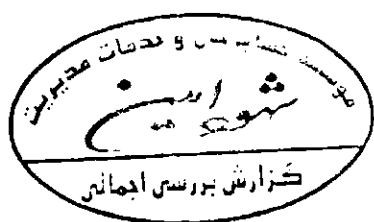 موسسه حسابرسی و خدمات مدیریت
گزارش بررسی اجمالی